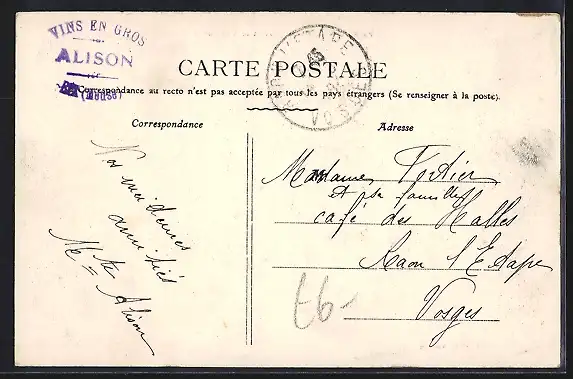 VINS EN GROS
ALISON
(Meuse)
CARTE POSTALE
Correspondance au recto n'est pas acceptée par tous les pays étrangers (Se renseigner à la poste).
Correspondance
Adresse
Nos meilleures
amitiés
Mme Alison
Madame Fortier
et sa famille
café des Halles
Raon l'Etape
Vosges
E6-